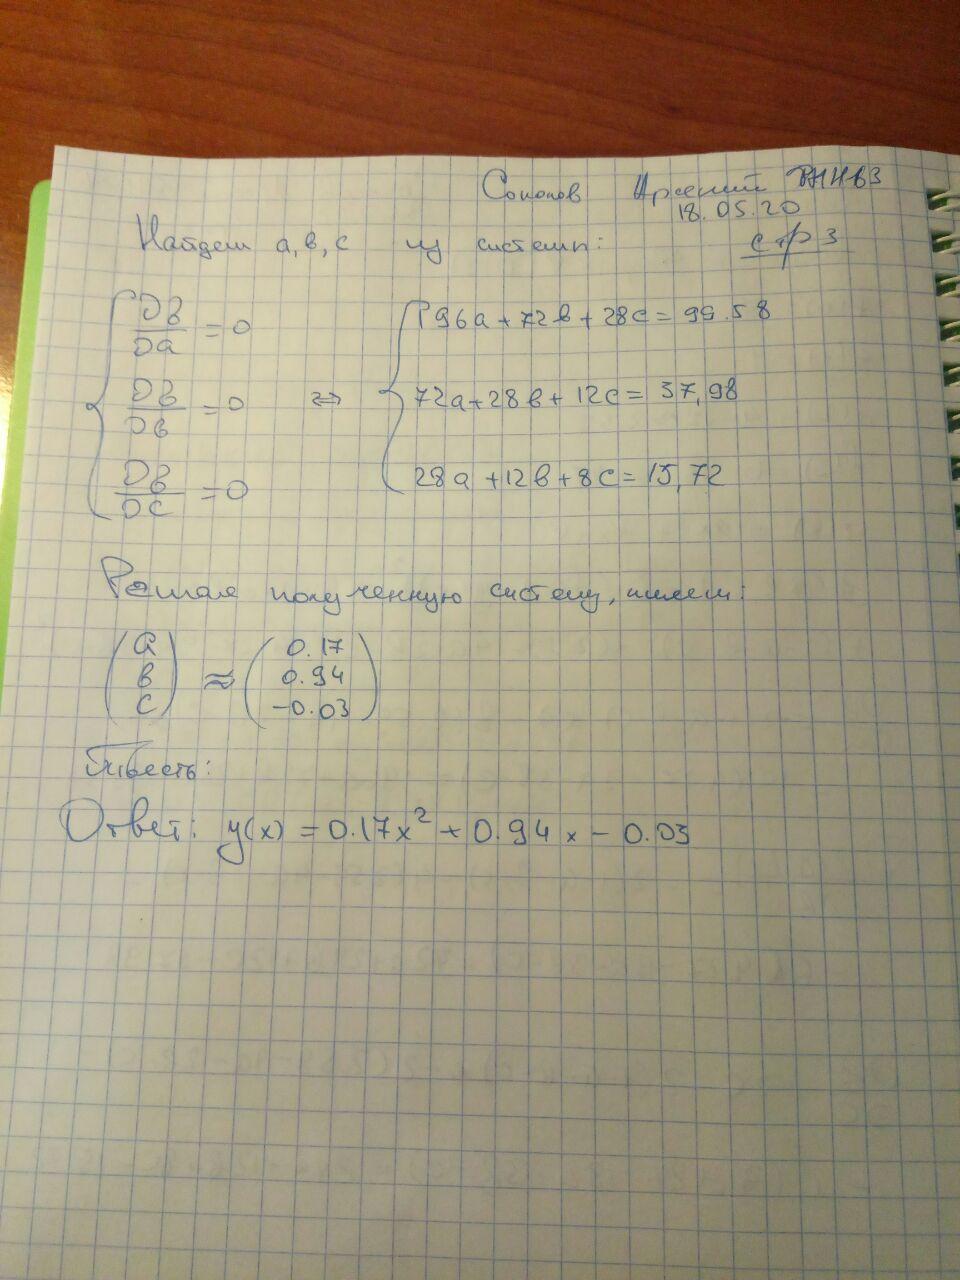 Соколов Арсений
18.05.20
Найдем a, b, c из системы:
стр 3
∂b/∂a = 0
196a + 72b + 28c = 99.58
∂b/∂b = 0 ⇔ 72a + 28b + 12c = 37,98
∂b/∂c = 0
28a + 12b + 8c = 15,72
Решая полученную систему, имеем:
(a b c) ≈ (0.17 0.94 -0.03)
Ответ: y(x) = 0.17x² + 0.94x - 0.03